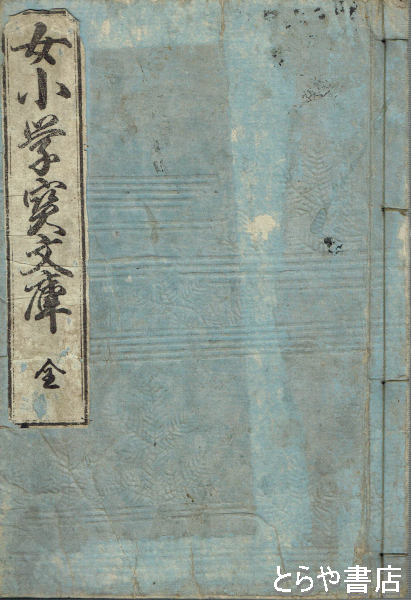 女小学宝文庫 全
とらや書店